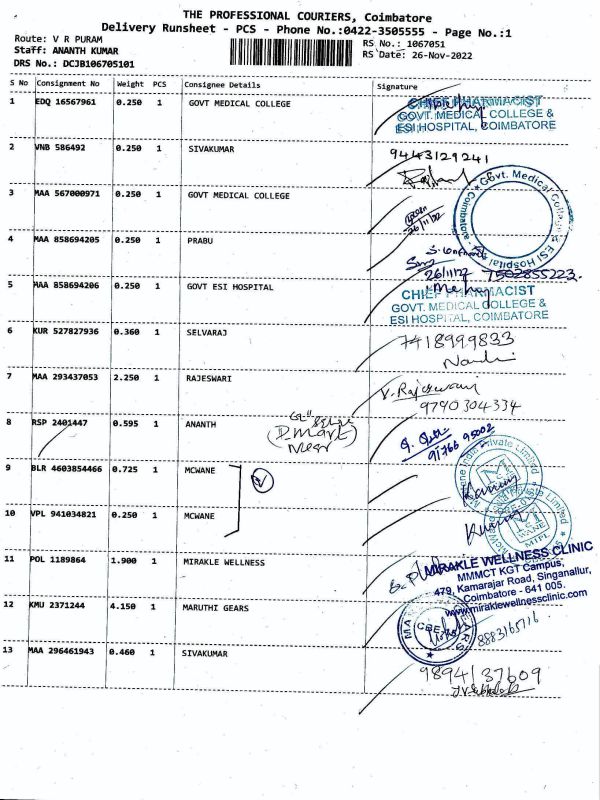 THE PROFESSIONAL COURIERS, Coimbatore
Delivery Runsheet - PCS - Phone No.:0422-3505555 - Page No.:1
Route: V R PURAM
Staff: ANANTH KUMAR
DRS No.: DCJB106705101
RS No.: 1067051
RS Date: 26-Nov-2022
S No Consignment No Weight PCS Consignee Details Signature
1 EDQ 16567961 0.250 1 GOVT MEDICAL COLLEGE
CHIEF PHARMACIST
GOVT. MEDICAL COLLEGE &
ESI HOSPITAL, COIMBATORE
2 VNB 586492 0.250 1 SIVAKUMAR
9443129241
3 MAA 567000971 0.250 1 GOVT MEDICAL COLLEGE
26/11/22
Govt. Medical College
ESI Hospital
Coimbatore
4 MAA 858694205 0.250 1 PRABU
26/11/22 7502855223
5 MAA 858694206 0.250 1 GOVT ESI HOSPITAL
CHIEF PHARMACIST
GOVT. MEDICAL COLLEGE &
ESI HOSPITAL, COIMBATORE
6 KUR 527827936 0.360 1 SELVARAJ
7418999833
7 MAA 293437053 2.250 1 RAJESWARI
V. Rajeswari
9790304334
8 RSP 2401447 0.595 1 ANANTH
(D.Mart)
Near
91766 95002
9 BLR 4603854466 0.725 1 MCWANE
10 VPL 941034821 0.250 1 MCWANE
Private Limited
11 POL 1189864 1.900 1 MIRAKLE WELLNESS
MIRAKLE WELLNESS CLINIC
MMMCT KGT Campus,
479, Kamarajar Road, Singanallur,
Coimbatore - 641 005.
www.miraklewellnessclinic.com
12 KMU 2371244 4.150 1 MARUTHI GEARS
CBE
8883165716
13 MAA 296461943 0.460 1 SIVAKUMAR
9894137609